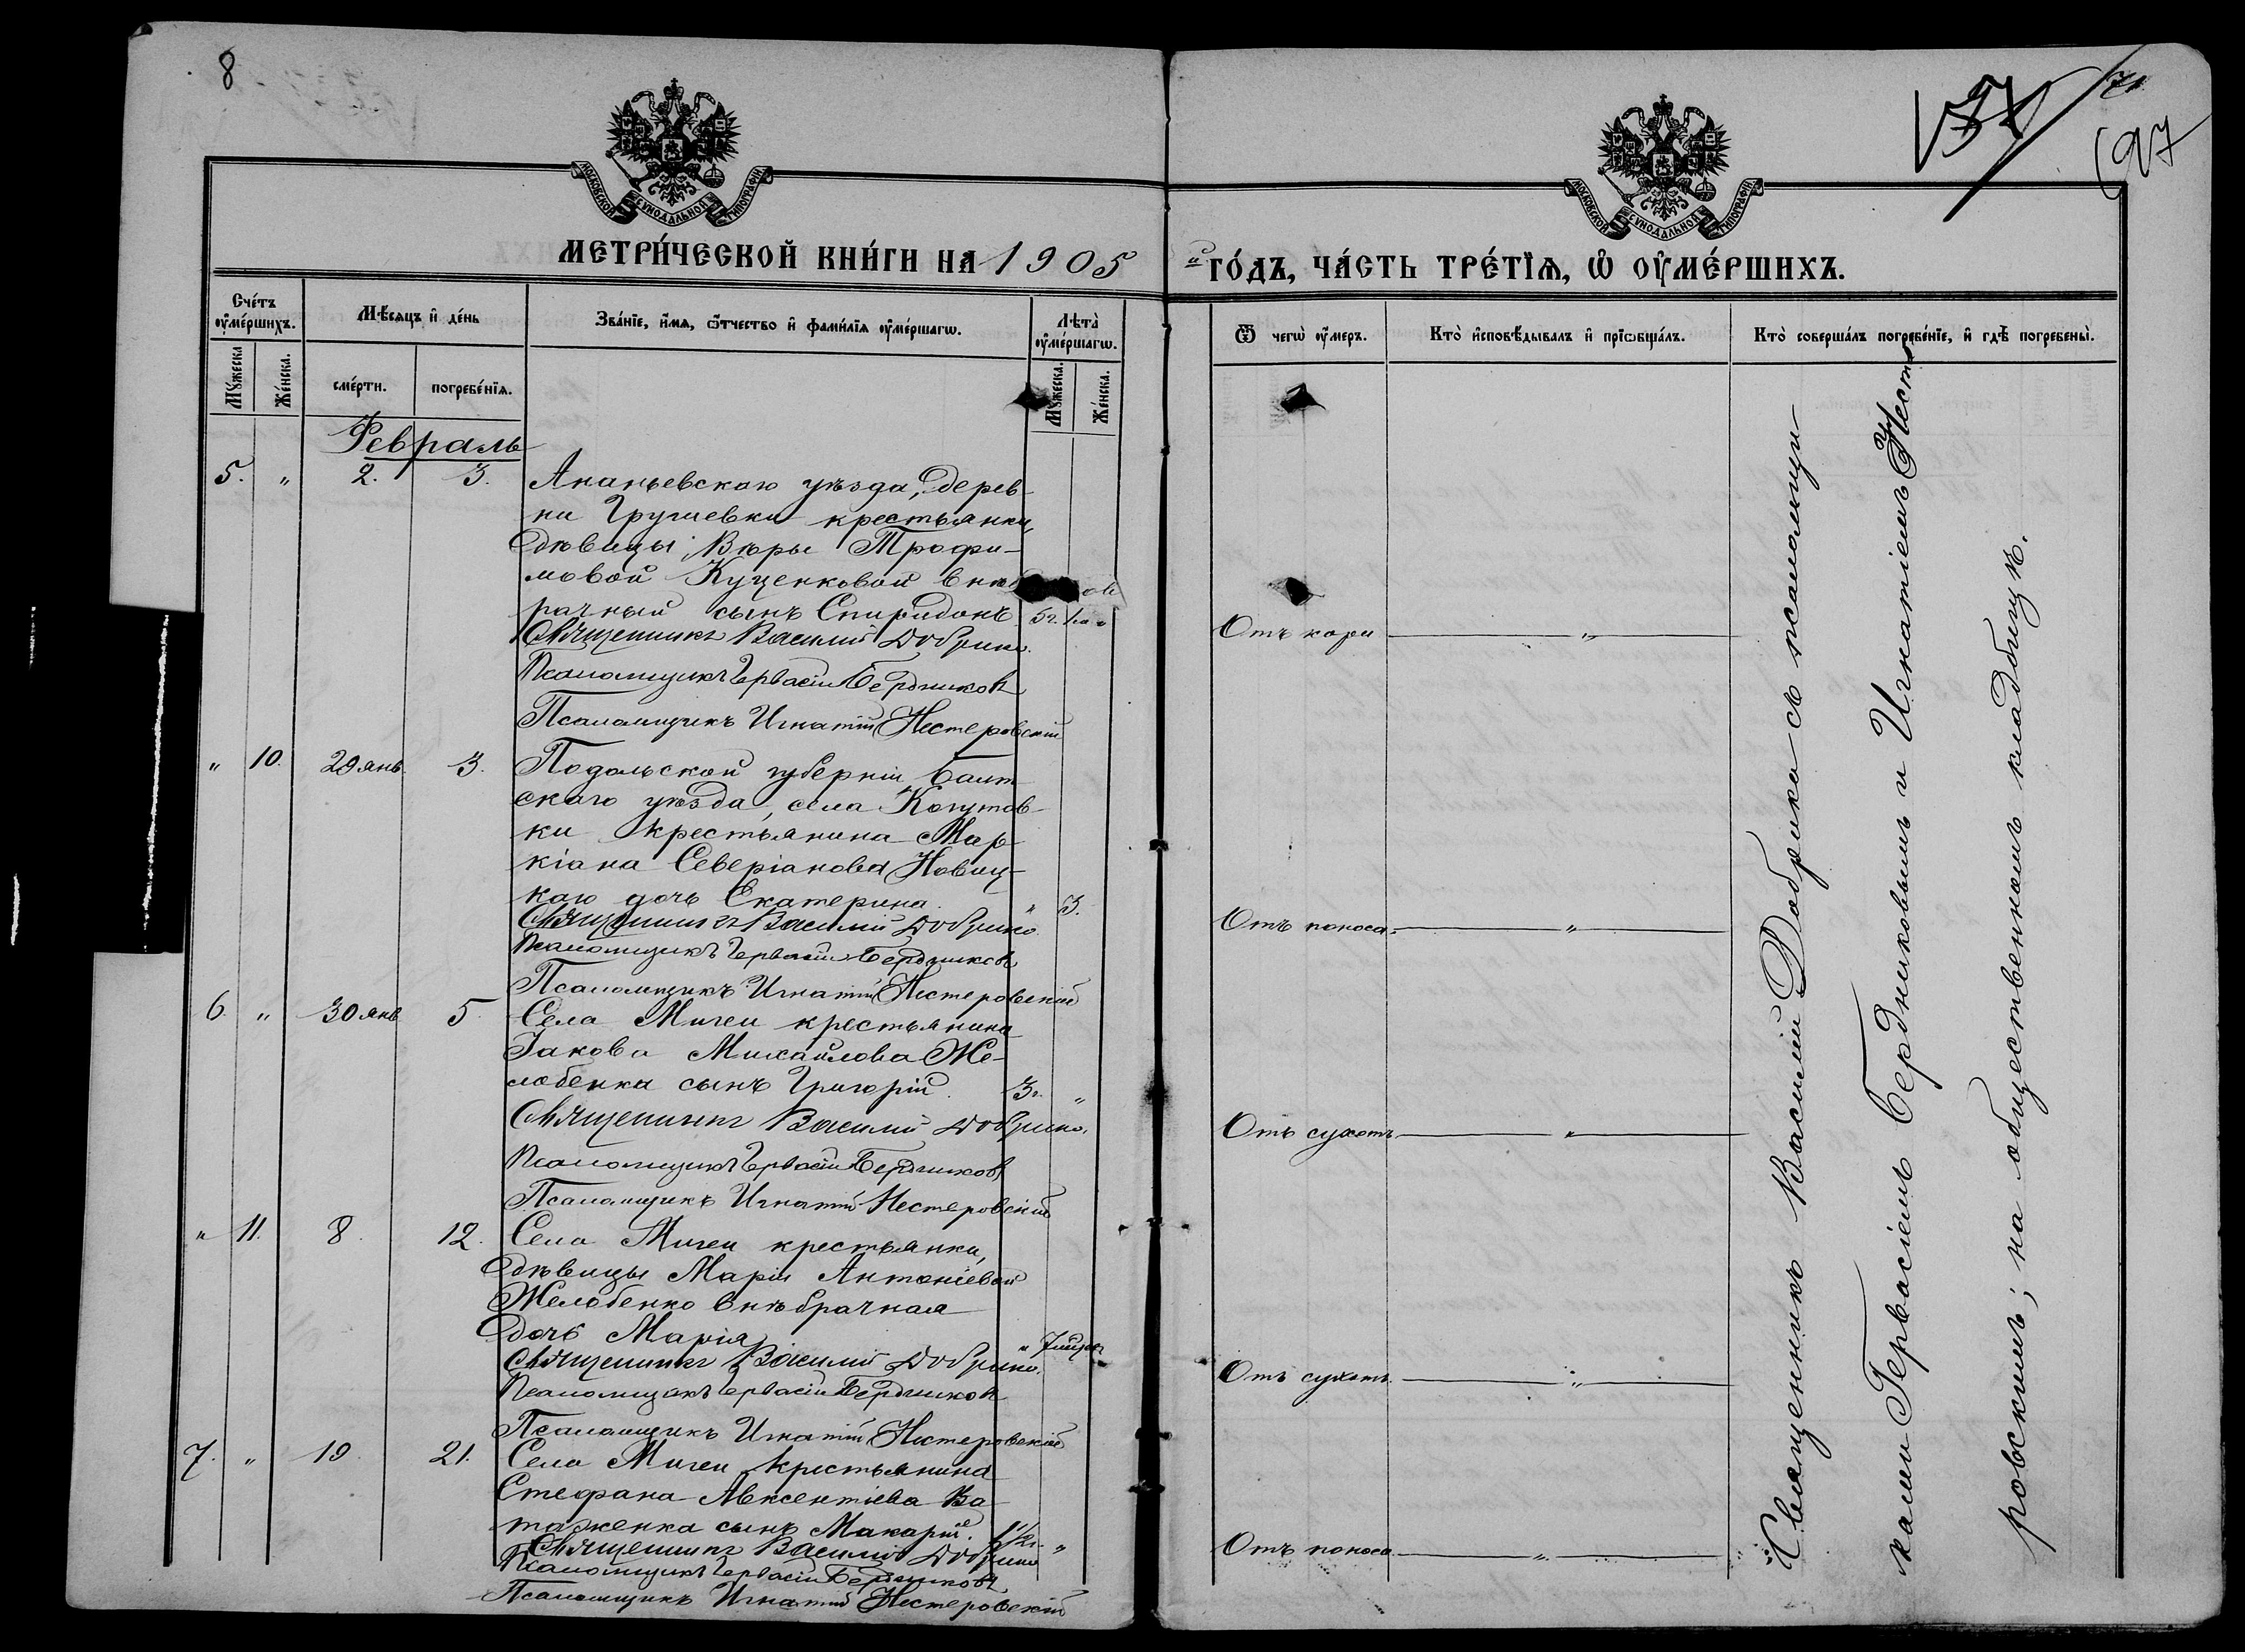 8
71
97
МОСКОВСКОЙ СѴНОДАЛЬНОЙ ТИПОГРАФІИ
МОСКОВСКОЙ СѴНОДАЛЬНОЙ ТИПОГРАФІИ
МЕТРИ́ЧЕСКОЙ КНИ́ГИ НА 1905
й ГО́ДЪ, ЧА́СТЬ ТРЕ́ТЇѦ, Ѽ ОУ҆МЕ́РШИХЪ.
Сче́тъ оу҆ме́ршихъ.
Мꙋ́жеска
Же́нска.
Мѣ́сяцъ и҆ де́нь
сме́рти.
погребе́нїѧ.
Зва́нїе, и҆́мѧ, ѻ҆́тчество и҆ фами́лїѧ оу҆ме́ршагѡ.
Лѣ́та оу҆ме́ршагѡ.
Мꙋ́жеска.
Же́нска.
Ѿ чегѡ̀ оу҆́меръ.
Кто̀ и҆сповѣ́дывалъ и҆ прїѻбща́лъ.
Кто̀ соверша́лъ погребе́нїе, и҆ гдѣ̀ погребены̀.
Февраль
5. " 2. 3. Ананьевскаго уѣзда, дерев-
ни Грушевки крестьянки,
дѣвицы, Вѣры Трофи-
мовой Куценковой внѣб
рачный сынъ Спиридонъ. 5г. "
Отъ кори — " —
Священникъ Василій Добрико.
Псаломщикъ Гервасій Бердников
Псаломщикъ Игнатій Нестеровскій
" 10. 29 янв. 3. Подольской губерніи Балт-
скаго уѣзда, села Когутов-
ки крестьянина Мар-
кіана Северіанова Новиц-
каго дочь Екатерина. " 3.
Отъ поноса. — " —
Священникъ Василій Добрико
Псаломщикъ Гервасій Бердников
Псаломщикъ Игнатій Нестеровскій
6. " 30 янв 5 Села Мигеи крестьянина
Іакова Михайлова Же-
лобенка сынъ Григорій. 3г. "
Отъ сухотъ — " —
Священникъ Василій Добрико.
Псаломщикъ Гервасій Бердников
Псаломщикъ Игнатій Нестеровскій
" 11. 8. 12. Села Мигеи крестьянки,
дѣвицы Маріи Антоніевой
Желобенко внѣбрачная
дочь Марія " 7 мцев
Отъ сухотъ. — " —
Священникъ Василій Добрико.
Псаломщикъ Гервасій Бердников
Псаломщикъ Игнатій Нестеровскій
7. " 19 21. Села Мигеи крестьянина
Стефана Авксентіева Ва-
таженка сынъ Макарій. 1½г. "
Отъ поноса — " —
Священникъ Василій Добрико
Псаломщикъ Гервасій Бердников
Псаломщикъ Игнатій Нестеровскій
Священникъ Василій Добрико съ псаломщи-
ками Гервасіемъ Бердниковымъ и Игнатіемъ Несте
ровскимъ; на общественномъ кладбищѣ.